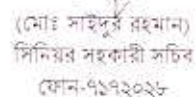 (মোঃ সাইদুর রহমান)
সিনিয়র সহকারী সচিব
ফোন-৭১৭২০২৮